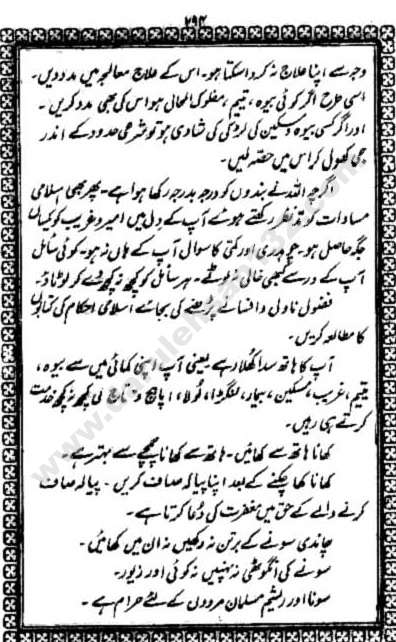 ۲۹۴
وجہ سے اپنا علاج نہ کرواسکتا ہو۔ اس کے علاج معالجہ میں مدد دیں۔
اسی طرح اگر کوئی بیوہ، یتیم، مفلوک الحال ہو اس کی بھی مدد کریں۔
اور اگر کسی بیوہ و مسکین کی لڑکی کی شادی ہو تو شرعی حدود کے اندر
جی کھول کر اس میں حصہ لیں۔
اگرچہ اللہ نے بندوں کو درجہ بدرجہ رکھا ہوا ہے۔ پھر بھی اسلامی
مساوات کو مدنظر رکھتے ہوئے آپ کے دل میں امیر و غریب کو یکساں
جگہ حاصل ہو۔ چوہدری اور کمّی کا سوال آپ کے ہاں نہ ہو۔ کوئی سائل
آپ کے در سے کبھی خالی نہ لوٹے۔ ہر سائل کو کچھ نہ کچھ دے کر لوٹاؤ۔
فضول ناول و افسانے پڑھنے کی بجائے اسلامی احکام کی کتابوں
کا مطالعہ کریں۔
آپ کا ہاتھ سدا کھُلا رہے یعنی آپ اپنی کمائی میں سے بیوہ،
یتیم، غریب، مسکین، بیمار، لنگڑا، لُولا، اپاہج و محتاج کی کچھ نہ کچھ خدمت
کرتے ہی رہیں۔
کھانا ہاتھ سے کھائیں۔ ہاتھ سے کھانا چمچے سے بہتر ہے۔
کھانا کھا چکنے کے بعد اپنا پیالہ صاف کریں۔ پیالہ صاف
کرنے والے کے حق میں مغفرت کی دُعا کرتا ہے۔
چاندی سونے کے برتن نہ رکھیں نہ ان میں کھائیں۔
سونے کی انگوٹھی نہ پہنیں نہ کوئی اور زیور۔
سونا اور ریشم مسلمان مردوں کے لئے حرام ہے۔